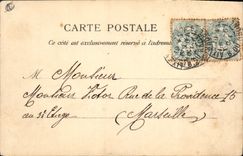 CARTE POSTALE
Ce côté est exclusivement réservé à l'adresse
M. Monsieur
Monsieur Victor Rue de la Providence 15
au 3e Etage
Marseille